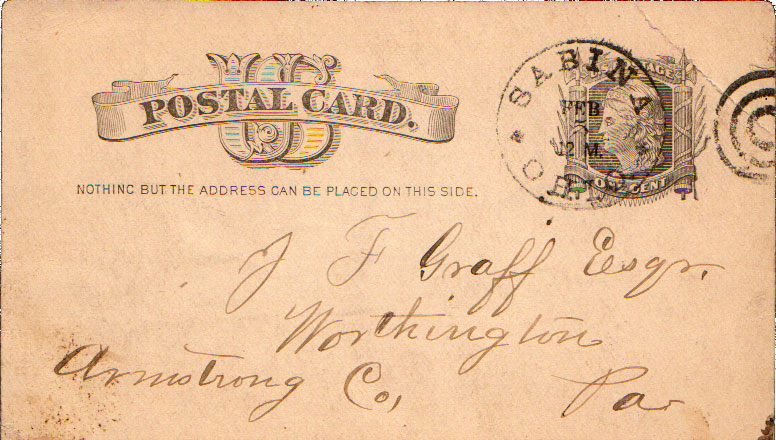 US
POSTAL CARD.
NOTHING BUT THE ADDRESS CAN BE PLACED ON THIS SIDE.
SABINA
FEB
12 M.
OHIO
POSTAGE
ONE CENT
J F Graff Esqr.
Worthington
Armstrong Co, Pa